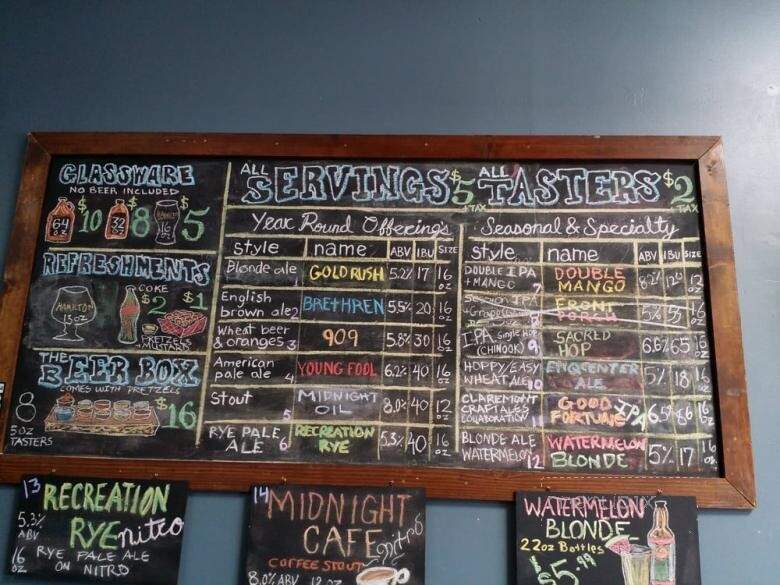 GLASSWARE
NO BEER INCLUDED
64 oz $10 32 oz $8 16 oz $5
REFRESHMENTS
HAMILTON
COKE
$2 $1
PRETZELS
MUSTARD
THE
BEER BOX
COMES WITH PRETZELS
8
5OZ
TASTERS
$16
ALL SERVINGS $5 +TAX
ALL TASTERS $2 +TAX
Year Round Offerings
style name ABV IBU SIZE
Blonde ale 1 GOLD RUSH 5.2% 17 16 oz
English
brown ale 2 BRETHREN 5.5% 20 16 oz
Wheat beer
& oranges 3 909 5.8% 30 16 oz
American
pale ale 4 YOUNG FOOL 6.2% 40 16 oz
Stout 5 MIDNIGHT OIL 8.0% 40 12 oz
RYE PALE
ALE 6 RECREATION RYE 5.3% 40 16 oz
Seasonal & Specialty
style name ABV IBU SIZE
DOUBLE IPA
+ MANGO 7 DOUBLE MANGO 12 oz
IPA FRONT PORCH 5%
IPA Single Hop
(CHINOOK) 9 SACRED HOP 6.6% 65 16 oz
HOPPY/EASY
WHEAT ALE 10 ALE 5% 18 16 oz
CLAREMONT
CRAFT ALES
COLLABORATION 11 GOOD FORTUNE IPA 6.5% 86 16 oz
BLONDE ALE
WATERMELON 12 WATERMELON BLONDE 5% 17 16 oz
13 RECREATION
RYE nitro
5.3%
ABV
16
oz
RYE PALE ALE
ON NITRO
14 MIDNIGHT
CAFE nitro
COFFEE STOUT
8.0% ABV 12 oz
WATERMELON
BLONDE
22oz Bottles
$5.99